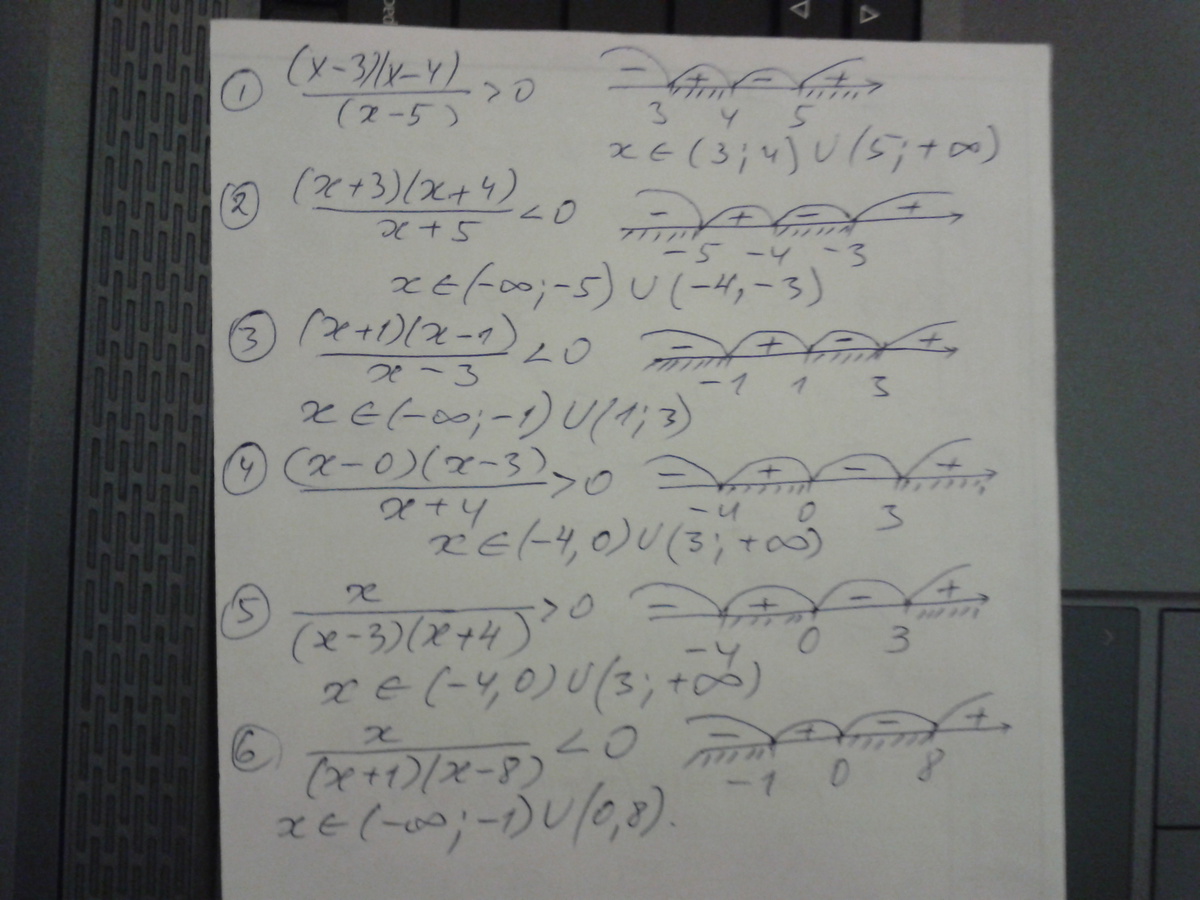 ① (x-3)(x-4)/(x-5) > 0
- + - +
3 4 5
x ∈ (3; 4) ∪ (5; +∞)
② (x+3)(x+4)/x+5 < 0
- + - +
-5 -4 -3
x ∈ (-∞; -5) ∪ (-4, -3)
③ (x+1)(x-1)/x-3 < 0
- + - +
-1 1 3
x ∈ (-∞; -1) ∪ (1; 3)
④ (x-0)(x-3)/x+4 > 0
- + - +
-4 0 3
x ∈ (-4, 0) ∪ (3; +∞)
⑤ x/(x-3)(x+4) > 0
- + - +
-4 0 3
x ∈ (-4, 0) ∪ (3; +∞)
⑥ x/(x+1)(x-8) < 0
- + - +
-1 0 8
x ∈ (-∞; -1) ∪ (0, 8).